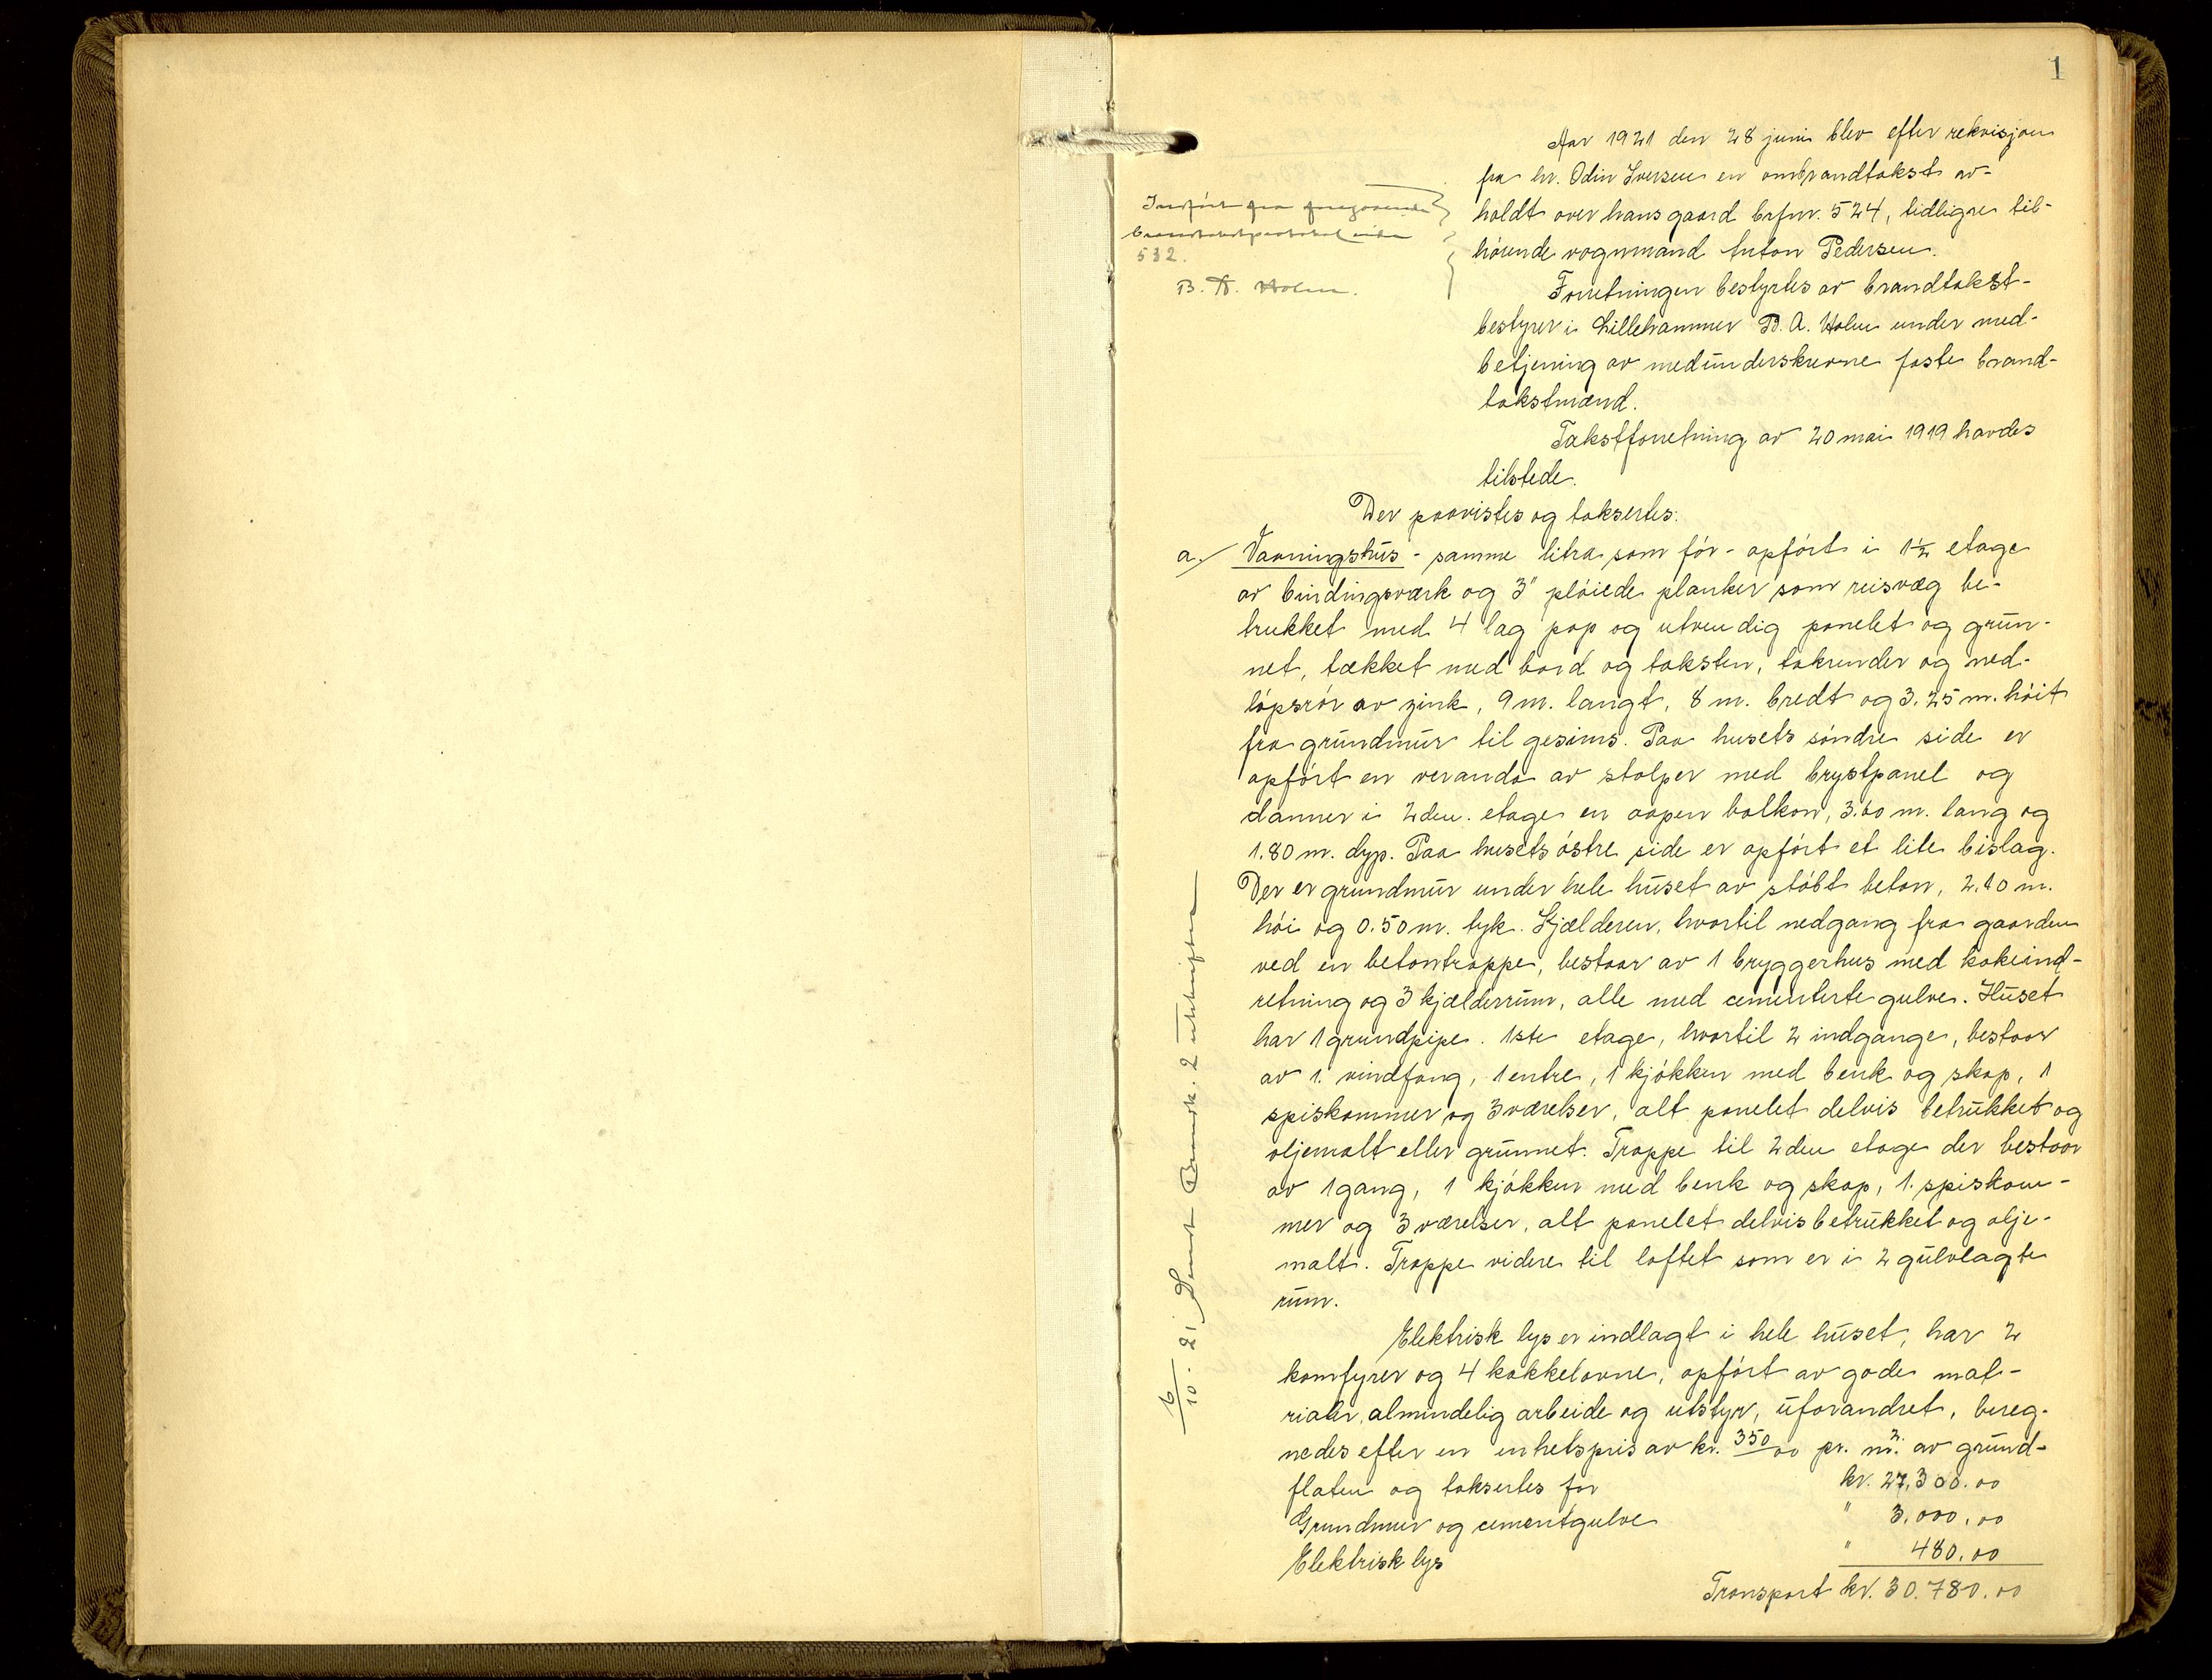 1
Aar 1921 den 28 juni blev efter rekvisjon
fra hr. Odin Iversen en ombrandtakst av-
holdt over hans gaard brfnr. 524, tidligre til-
hørende vognmand Anton Pedersen.
Forretningen bestyrtes av brandtakst-
bestyrer i Lillehammer B. A. Holm under med-
betjening av medunderskrevne faste brand-
takstmænd.
Takstforretning av 20 mai 1919 havdes
tilstede.
Indført fra foregaaende
brandtakstprotokol side
532.
B. A. Holm.
Der paavistes og taksertes:
a. Vaaningshus - samme litra som før - opført i 1½ etage
av bindingsværk og 3" pløiede planker som reisvæg be-
trukket med 4 lag pap og utvendig panelet og grun-
net, tækket med bord og taksten, takrender og ned-
løpsrør av zink, 9 m. langt, 8 m. bredt og 3.25 m. høit
fra grundmur til gesims. Paa husets søndre side er
opført en veranda av stolper med brystpanel og
danner i 2den. etage en aapen balkon, 3.60 m. lang og
1.80 m. dyp. Paa husets østre side er opført et lite bislag.
Der er grundmur under hele huset av støbt beton, 2.10 m.
høi og 0.50 m. tyk. Kjælderen, hvortil nedgang fra gaarden
ved en betontrappe, bestaar av 1 bryggerhus med kokeind-
retning og 3 kjælderrum, alle med cementerte gulve. Huset
har 1 grundpipe. 1ste etage, hvortil 2 indgange, bestaar
av 1. vindfang, 1 entre, 1 kjøkken med benk og skap, 1
spiskammer og 3 værelser, alt panelet delvis betrukket og
oljemalt eller grunnet. Trappe til 2den etage der bestaar
av 1 gang, 1 kjøkken med benk og skap, 1. spiskam-
mer og 3 værelser, alt panelet delvis betrukket og olje-
malt. Trappe videre til loftet som er i 2 gulvlagte
rum.
Elektrisk lys er indlagt i hele huset, har 2
komfyrer og 4 kakkelovne, opført av gode mat-
rialer, almindelig arbeide og utstyr, uforandret, bereg-
nedes efter en enhetspris av kr. 350 00 pr. m². av grund-
flaten og taksertes for kr. 27,300.00
Grundmur og cementgulve " 3.000.00
Elektrisk lys " 480.00
Transport kr. 30.780.00
6/10. 21 Sendt Brandk. 2 utskrifter